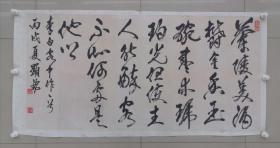 蘭陵美酒
鬱金香玉
碗盛来琥
珀光但使主
人能醉客
不知何處是
他鄉
李白客中作
丙戌夏